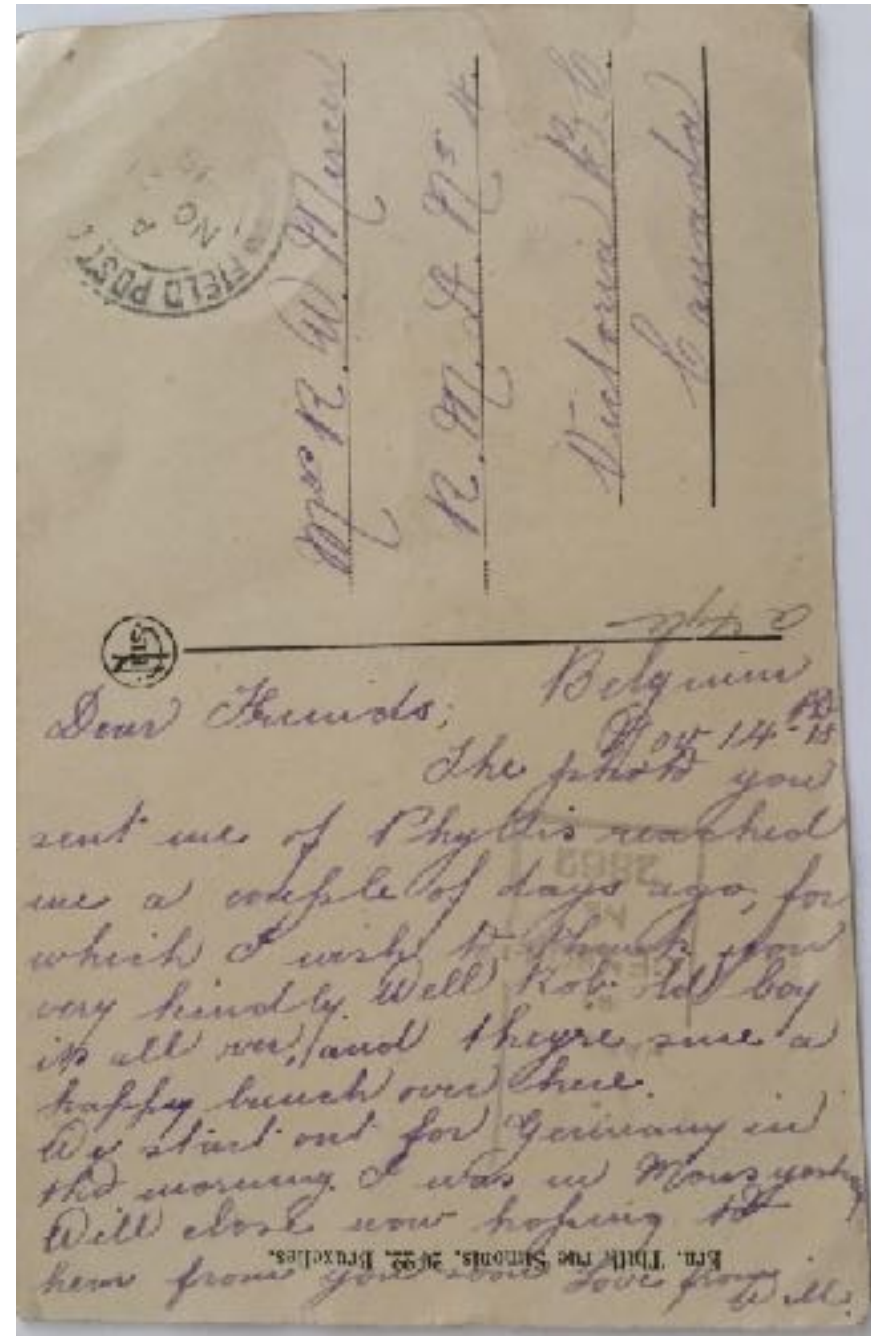 FIELD POST
NO
Mr R. W. Mercer
R. M. D. No 4
Victoria B.C.
Canada
Belgium
Dear Friends; Nov 14-18
The photo you
sent me of Phyllis reached
me a couple of days ago, for
which I wish to thank you
very kindly. Well Rob old boy
its all over, and theyre sure a
happy bunch over here.
We start out for Germany in
the morning. I was in Mons yesterday
Will close now hoping to
hear from you soon Love from
Will.
Ern. Thill, rue Simonis, 20-22, Bruxelles.
2862